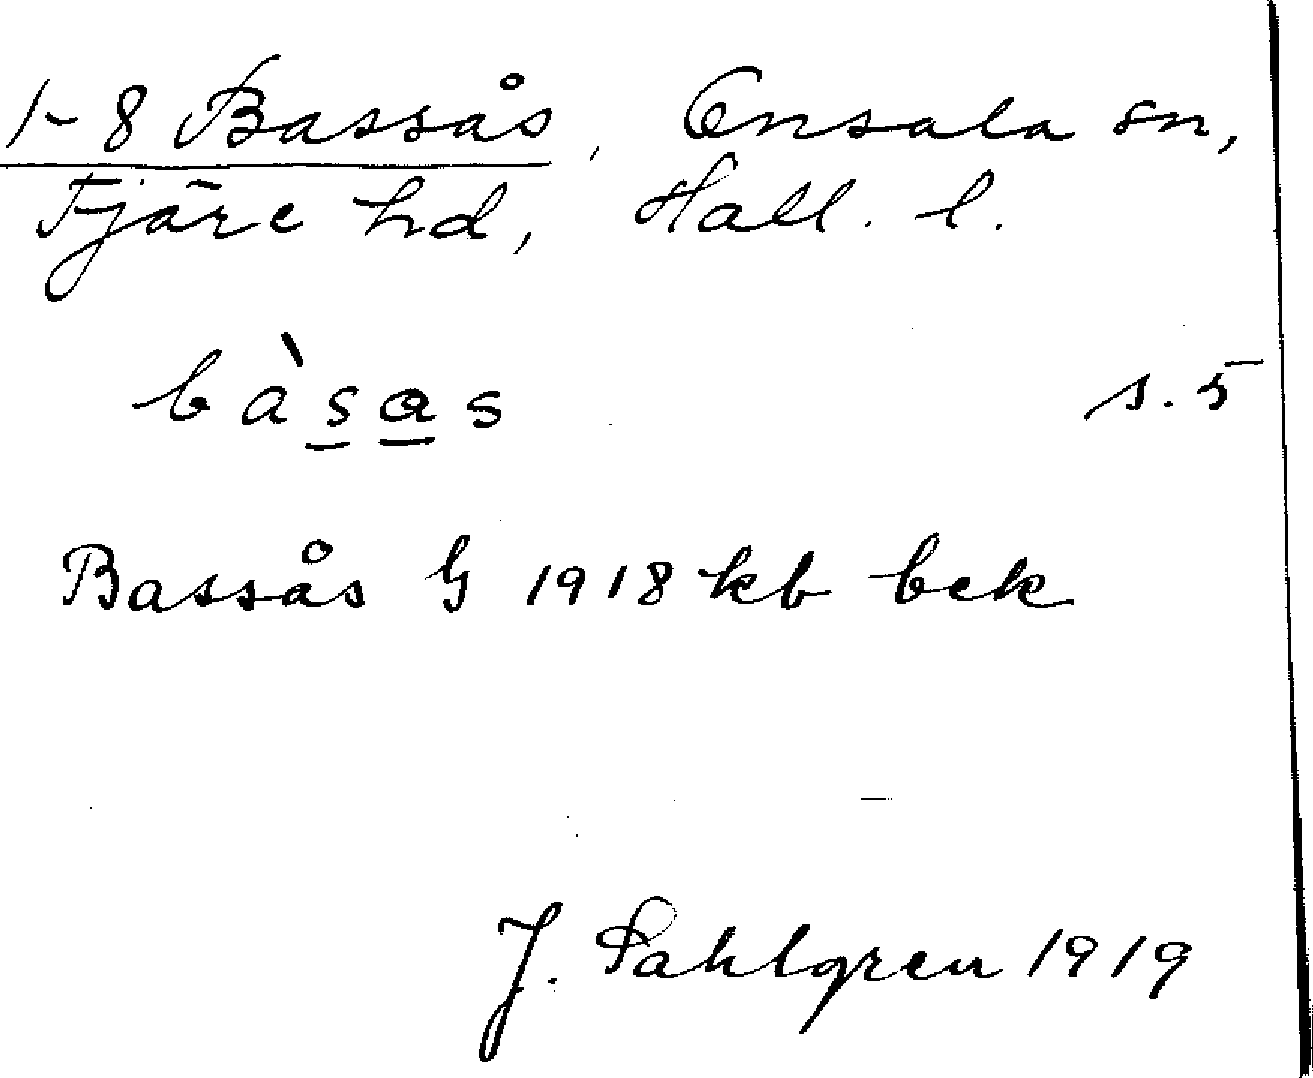 1-8 Bassås, Onsala sn,
Fjäre hd, Hall. l.
bàs̲a̲s s. 5
Bassås G 1918 kb bek
J. Sahlgren 1919